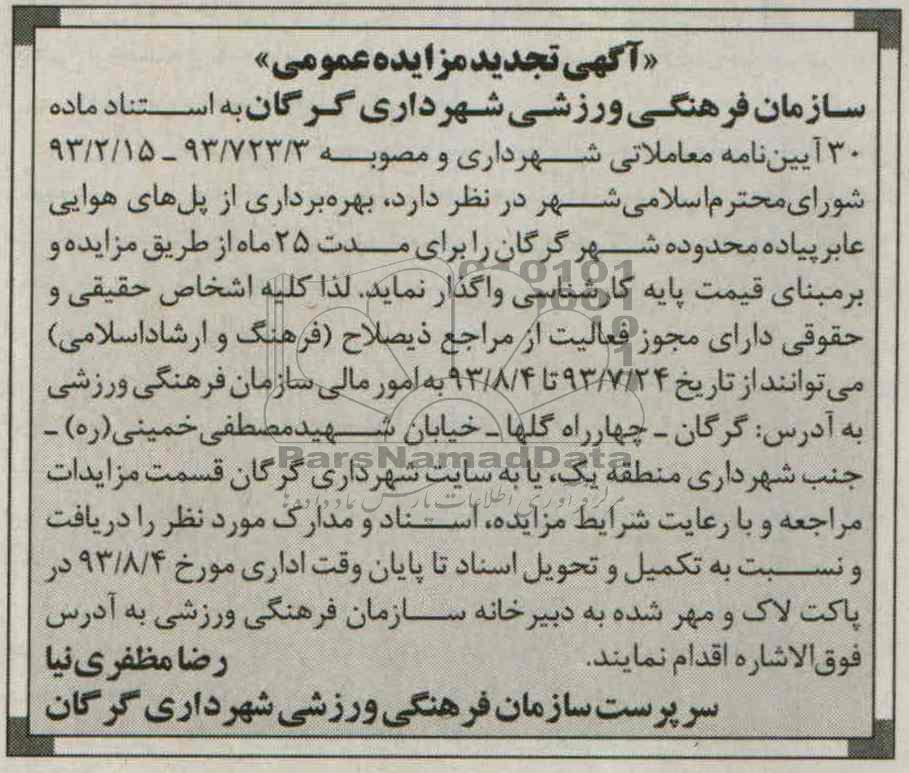 «آگهی تجدید مزایده عمومی»
سازمان فرهنگی ورزشی شهرداری گرگان به استناد ماده
۳۰ آیین‌نامه معاملاتی شهرداری و مصوبه ۹۳/۷۲۳/۳ ـ ۹۳/۲/۱۵
شورای‌محترم‌اسلامی‌شهر در نظر دارد، بهره‌برداری از پل‌های هوایی
عابر پیاده محدوده شهر گرگان را برای مدت ۲۵ ماه از طریق مزایده و
برمبنای قیمت پایه کارشناسی واگذار نماید. لذا کلیه اشخاص حقیقی و
حقوقی دارای مجوز فعالیت از مراجع ذیصلاح (فرهنگ و ارشاداسلامی)
می‌توانند از تاریخ ۹۳/۷/۲۴ تا ۹۳/۸/۴ به امور مالی سازمان فرهنگی ورزشی
به آدرس: گرگان ـ چهارراه گلها ـ خیابان شهیدمصطفی‌خمینی(ره) ـ
ParsNamadData
جنب شهرداری منطقه یک، یا به سایت شهرداری گرگان قسمت مزایدات
مراجعه و با رعایت شرایط مزایده، اسناد و مدارک مورد نظر را دریافت
و نسبت به تکمیل و تحویل اسناد تا پایان وقت اداری مورخ ۹۳/۸/۴ در
پاکت لاک و مهر شده به دبیرخانه سازمان فرهنگی ورزشی به آدرس
فوق‌الاشاره اقدام نمایند.
رضا مظفری نیا
سرپرست سازمان فرهنگی ورزشی شهرداری گرگان